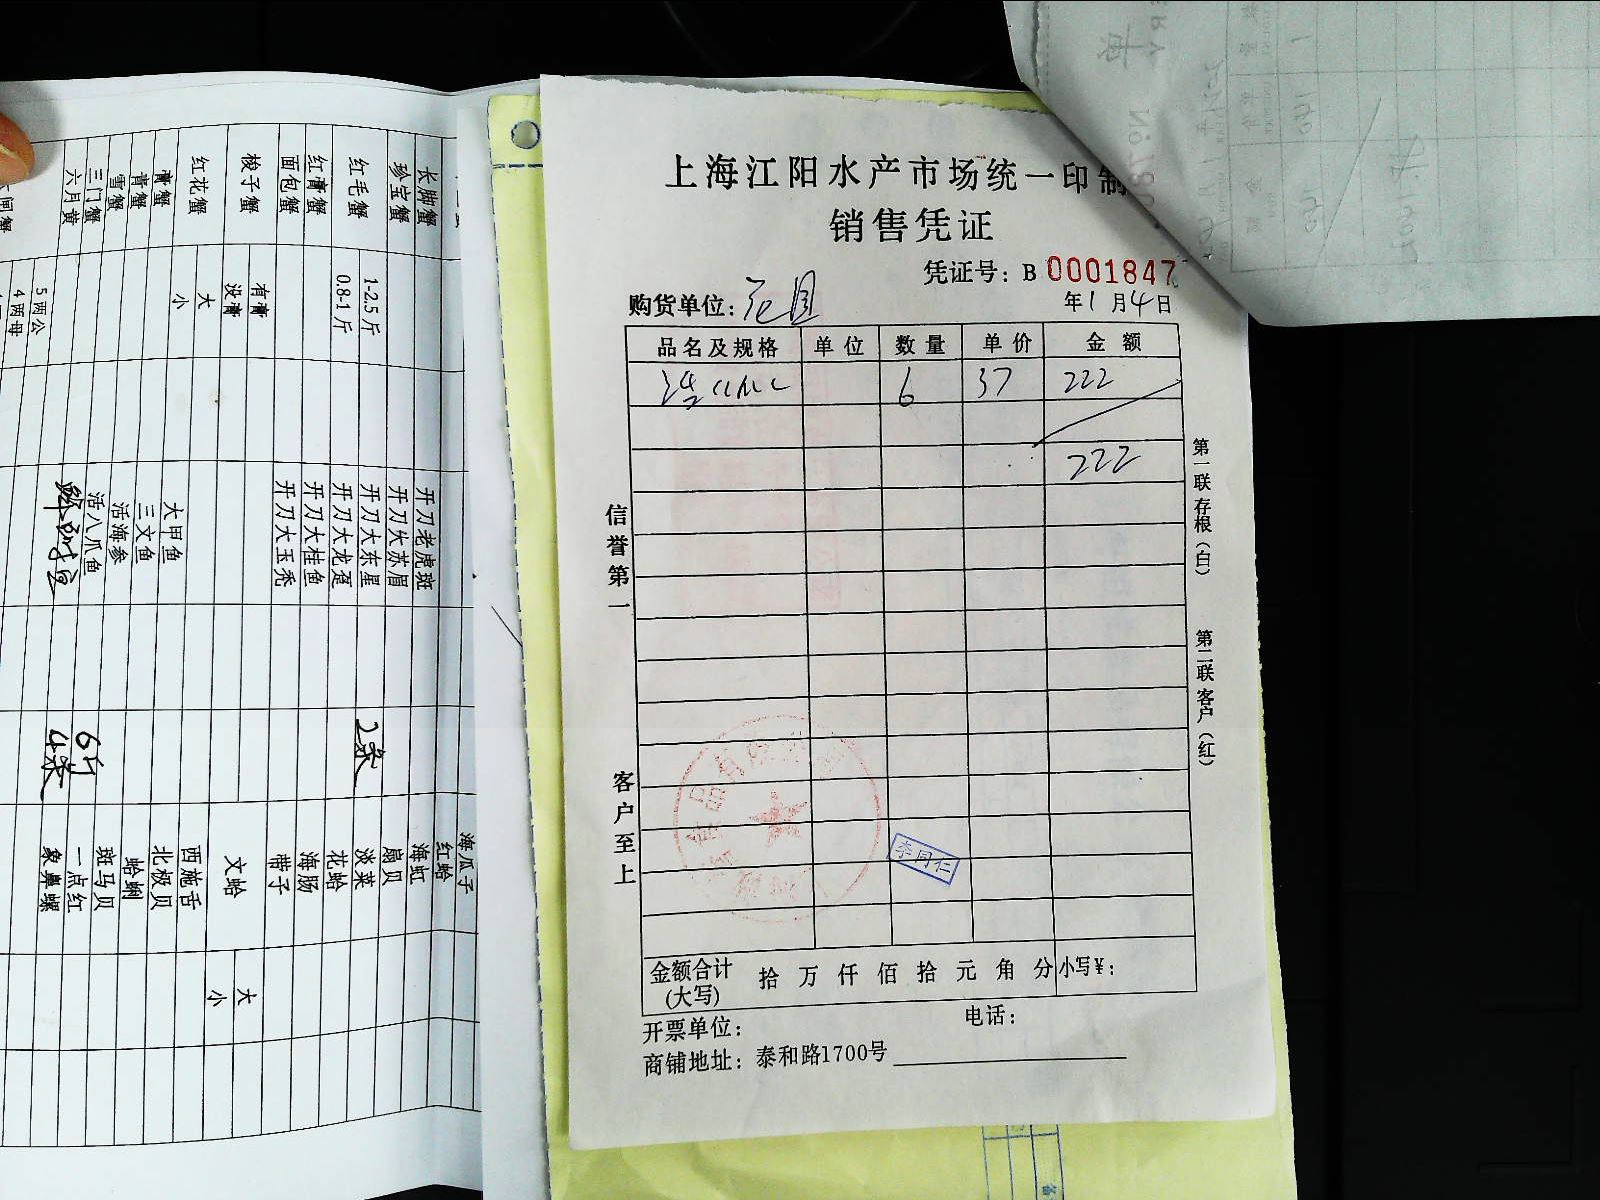 上海江阳水产市场统一印制
销售凭证
凭证号：B 0001847
购货单位：
年1月4日
品名及规格 单位 数量 单价 金额
6 37 222
222
信誉第一
客户至上
第一联存根（白）
第二联客户（红）
李同仁
金额合计（大写） 拾 万 仟 佰 拾 元 角 分 小写¥：
开票单位： 电话：
商铺地址：泰和路1700号
长脚蟹
珍宝蟹
红毛蟹 1-2.5斤
0.8-1斤
红膏蟹
面包蟹
梭子蟹 有膏
没膏
红花蟹 大
小
膏蟹
青蟹
雪蟹
三门蟹
六月黄
5两公
4两母
开刀老虎斑
开刀大苏眉
开刀大东星 2条
开刀大龙趸
开刀大桂鱼
开刀大玉秃
大甲鱼
三文鱼
活海参
活八爪鱼 6斤
4条
海瓜子
红蛤
海虹
扇贝
淡菜
花蛤
海肠
带子
文蛤 大
小
西施舌
北极贝
蛤蜊
斑马贝
一点红
象鼻螺